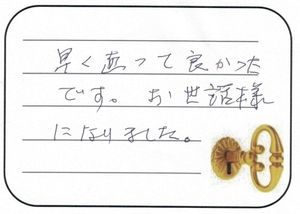 早く直って良かった
です。お世話様
になりました。